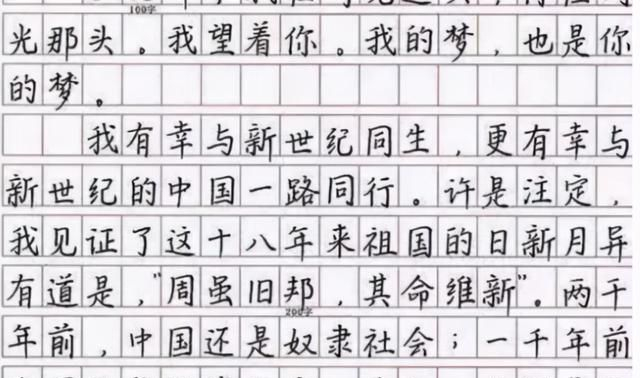 100字
光那头。我望着你。我的梦，也是你
的梦。
我有幸与新世纪同生，更有幸与
新世纪的中国一路同行。许是注定，
我见证了这十八年来祖国的日新月异
有道是，“周虽旧邦，其命维新”。两千
200字
年前，中国还是奴隶社会；一千年前